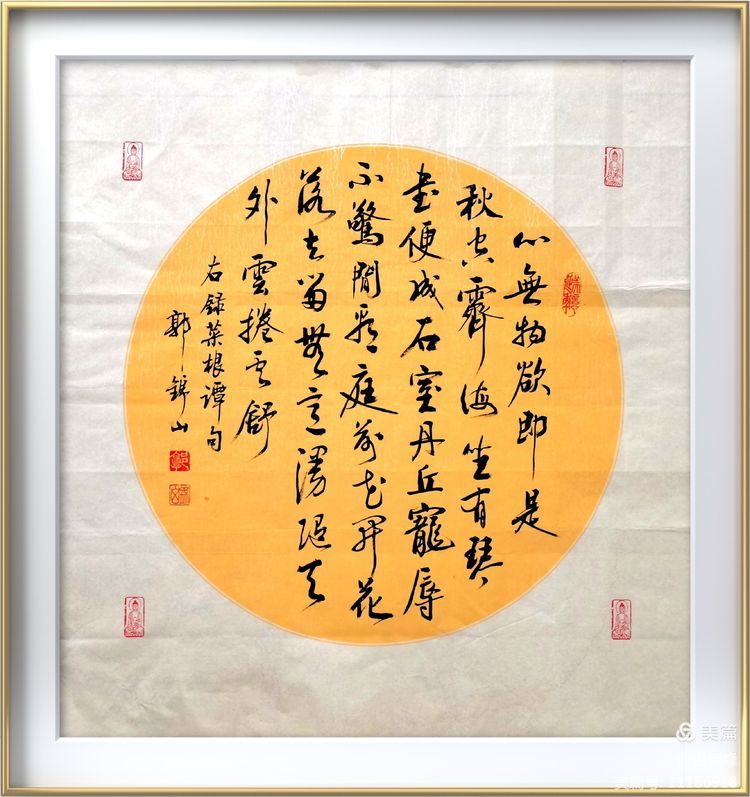 心無物欲即是
秋空霽海坐有琴
書便成石室丹丘寵辱
不驚閒看庭前花開花
落去留無意漫随天
外雲捲雲舒
右録菜根譚句
郭錦山
美篇